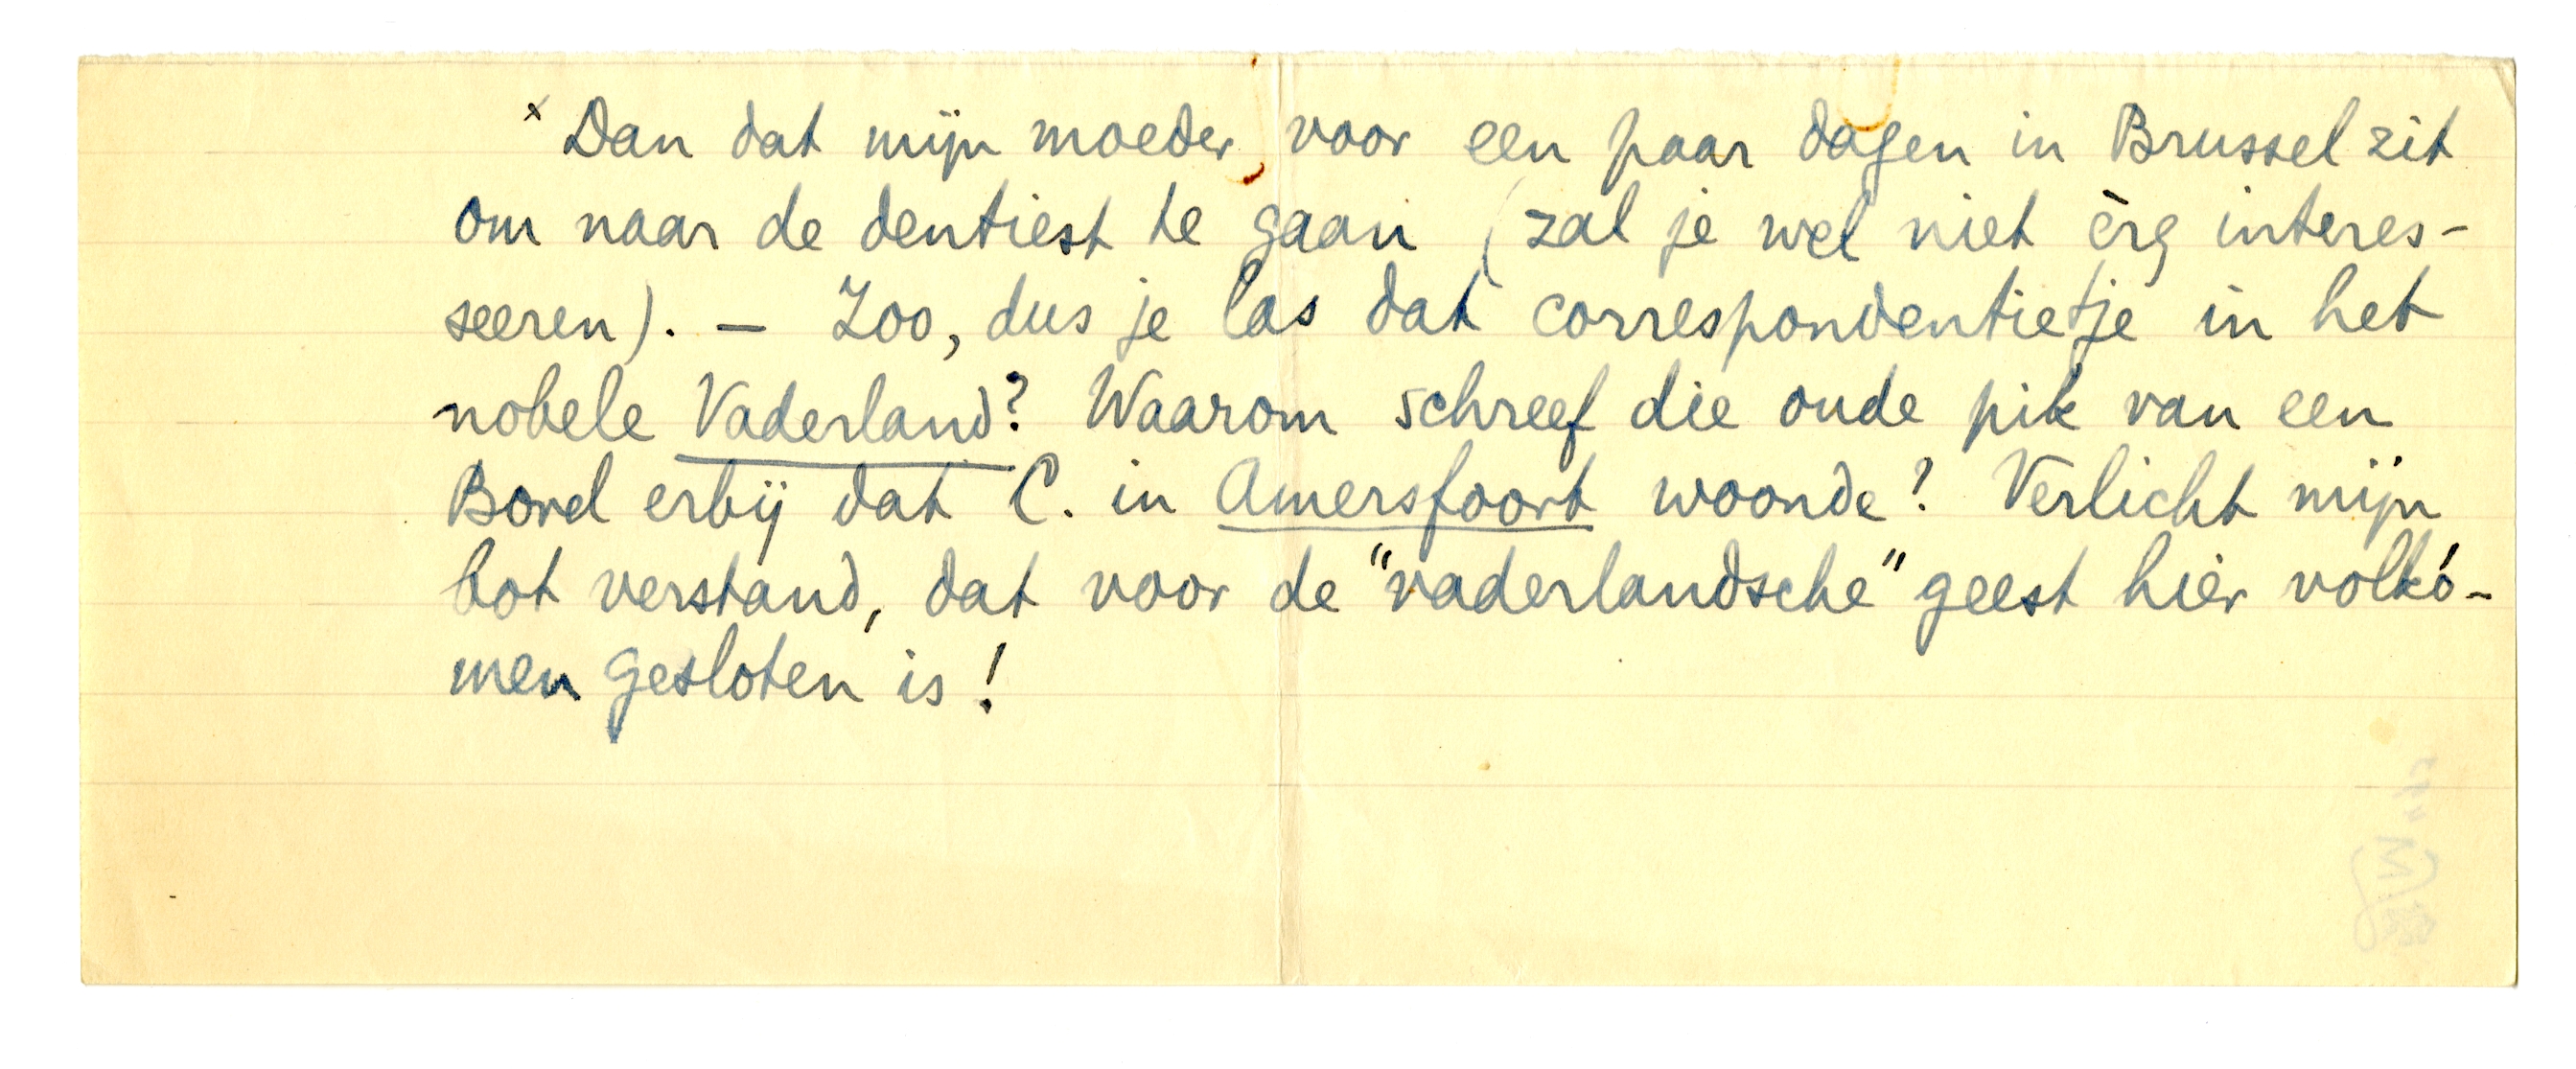 x Dan dat mijn moeder voor een paar dagen in Brussel zit
om naar de dentiest te gaan (zal je wel niet èrg interes-
seeren). — Zoo, dus je las dat correspondentietje in het
nobele Vaderland? Waarom schreef die oude pik van een
Borel erbij dat C. in Amersfoort woonde? Verlicht mijn
bot verstand, dat voor de "vaderlandsche" geest hier volkó-
men gesloten is!